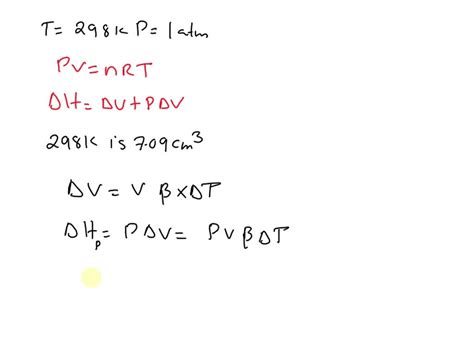 T= 298K P= 1atm
PV=nRT
ΔH= ΔU+PΔV
298K is 7.09cm³
ΔV = V β×ΔT
ΔHₚ = PΔV = PVβΔT